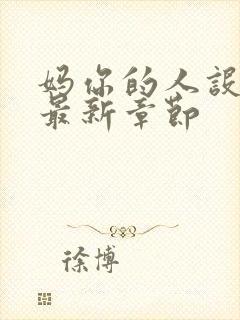 妈你的人设
最新章节
徐博